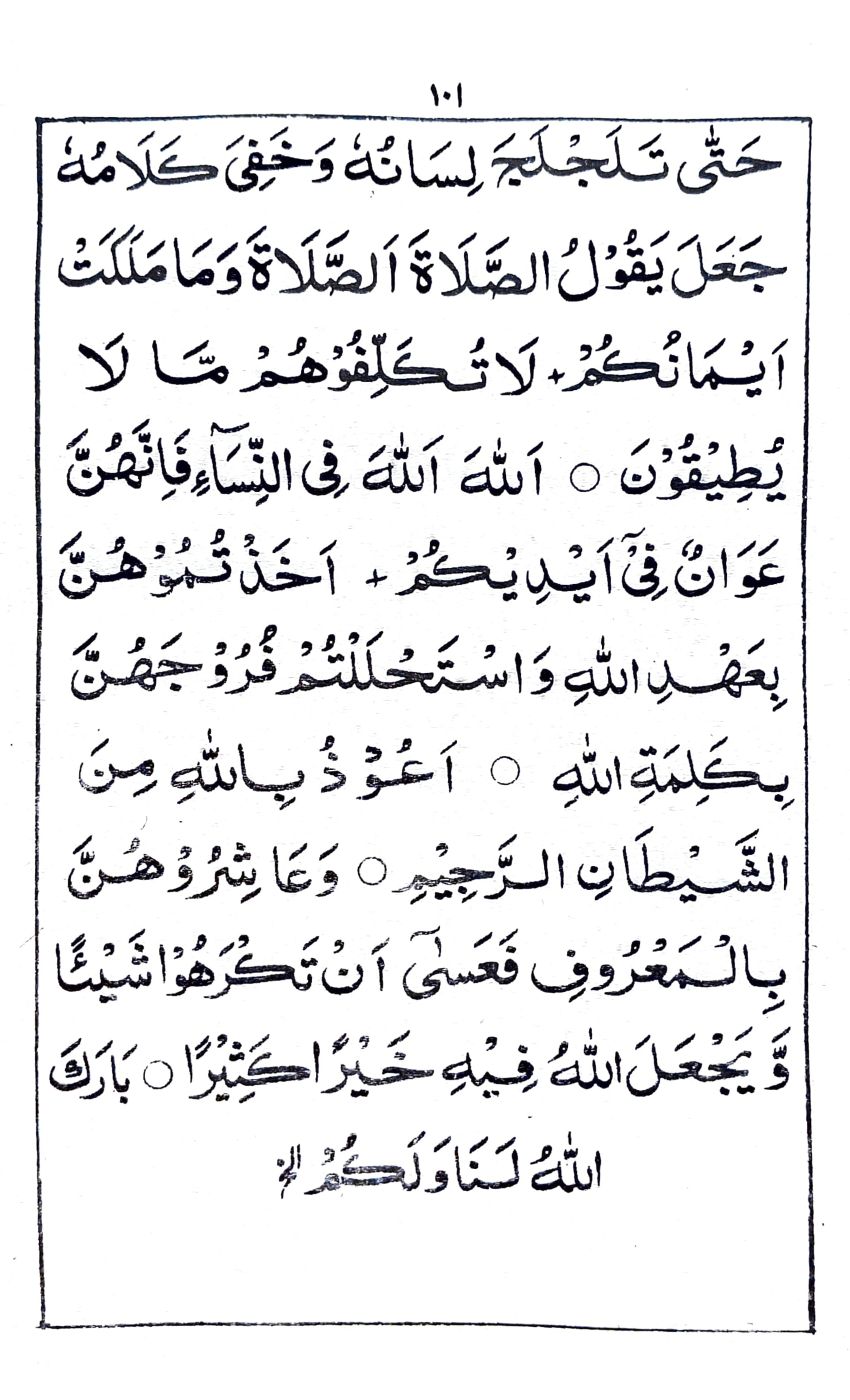 ١٠١
حَتّٰى تَلَجْلَجَ لِسَانُهٗ وَخَفِيَ كَلَامُهٗ
جَعَلَ يَقُوْلُ الصَّلَاةَ اَلصَّلَاةَ وَمَا مَلَكَتْ
اَيْمَانُكُمْ + لَا تُكَلِّفُوْهُمْ مَّا لَا
يُطِيْقُوْنَ ○ اَللّٰهَ اَللّٰهَ فِى النِّسَآءِ فَاِنَّهُنَّ
عَوَانٌ فِىْٓ اَيْدِيْكُمْ + اَخَذْتُمُوْهُنَّ
بِعَهْدِ اللّٰهِ وَاسْتَحْلَلْتُمْ فُرُوْجَهُنَّ
بِكَلِمَةِ اللّٰهِ ○ اَعُوْذُ بِاللّٰهِ مِنَ
الشَّيْطَانِ الرَّجِيْمِ ○ وَعَاشِرُوْهُنَّ
بِالْمَعْرُوفِ فَعَسٰٓى اَنْ تَكْرَهُوْا شَيْئًا
وَّيَجْعَلَ اللّٰهُ فِيْهِ خَيْرًا كَثِيْرًا ○ بَارَكَ
اللّٰهُ لَنَا وَلَكُمْ الخ